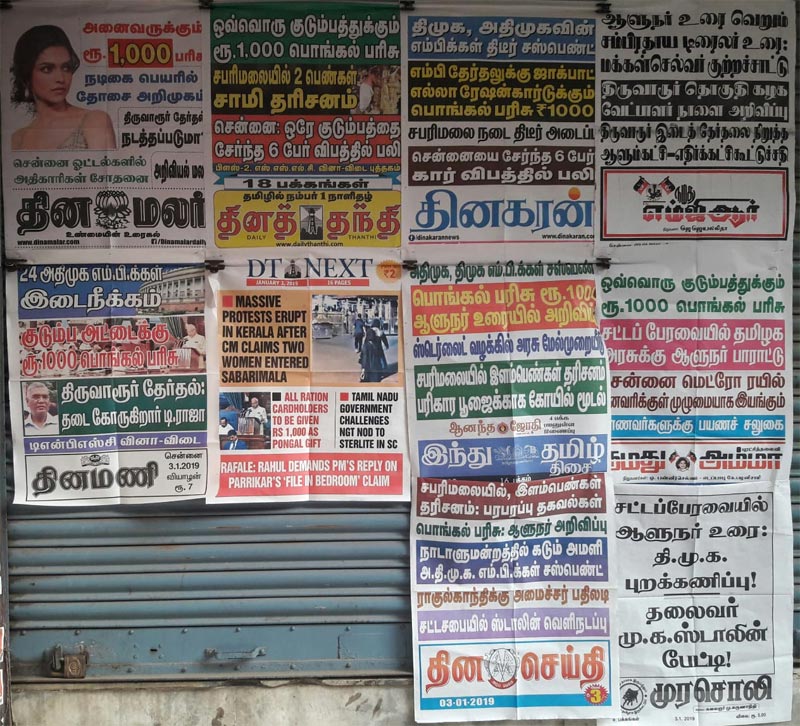 அனைவருக்கும்
ரூ.1,000 பரிசு
நடிகை பெயரில்
தோசை அறிமுகம்
திருவாரூர் தேர்தல்
நடத்தப்படுமா
சென்னை ஓட்டல்களில்
அதிகாரிகள் சோதனை
அறிவியல் மல
தின மலர்
உண்மையின் உரைகல்
www.dinamalar.com
/Dinamalardaily
ஒவ்வொரு குடும்பத்துக்கும்
ரூ.1,000 பொங்கல் பரிசு
சபரிமலையில் 2 பெண்கள்
சாமி தரிசனம்
சென்னை: ஒரே குடும்பத்தை
சேர்ந்த 6 பேர் விபத்தில் பலி
பிளஸ்-2, எஸ்.எஸ்.எல்.சி. வினா-விடை புத்தகம்
18 பக்கங்கள்
தமிழில் நம்பர் 1 நாளிதழ்
தினத் தந்தி
DAILY THANTHI
www.dailythanthi.com
திமுக, அதிமுகவின்
எம்பிக்கள் திடீர் சஸ்பெண்ட்
எம்பி தேர்தலுக்கு ஜாக்பாட்
எல்லா ரேஷன்கார்டுக்கும்
பொங்கல் பரிசு ₹1000
சபரிமலை நடை திடீர் அடைப்பு
சென்னையை சேர்ந்த 6 பேர்
கார் விபத்தில் பலி
தினகரன்
/dinakarannews
www.dinakaran.com
ஆளுநர் உரை வெறும்
சம்பிரதாய டிரைலர் உரை:
மக்கள்செல்வர் குற்றச்சாட்டு
திருவாரூர் தொகுதி கழக
வேட்பாளர் நாளை அறிவிப்பு
திருவாரூர் இடைத் தேர்தலை நிறுத்த
ஆளும்கட்சி-எதிர்க்கட்சி கூட்டுச்சதி
நமது
எம்ஜிஆர்
24 அதிமுக எம்.பி.க்கள்
இடைநீக்கம்
குடும்ப அட்டைக்கு
ரூ.1000 பொங்கல் பரிசு
திருவாரூர் தேர்தல்:
தடை கோருகிறார் டி.ராஜா
டிஎன்பிஎஸ்சி வினா-விடை
தினமணி
சென்னை
3.1.2019
வியாழன்
ரூ. 7
DT NEXT
₹2
JANUARY 3, 2019
16 PAGES
MASSIVE
PROTESTS ERUPT
IN KERALA AFTER
CM CLAIMS TWO
WOMEN ENTERED
SABARIMALA
ALL RATION
CARDHOLDERS
TO BE GIVEN
RS 1,000 AS
PONGAL GIFT
TAMIL NADU
GOVERNMENT
CHALLENGES
NGT NOD TO
STERLITE IN SC
RAFALE: RAHUL DEMANDS PM'S REPLY ON
PARRIKAR'S 'FILE IN BEDROOM' CLAIM
அதிமுக, திமுக எம்.பி.க்கள் சஸ்பெண்ட்
பொங்கல் பரிசு ரூ.1000
ஆளுநர் உரையில் அறிவிப்பு
ஸ்டெர்லைட் வழக்கில் அரசு மேல்முறையீ
சபரிமலையில் இளம்பெண்கள் தரிசனம்
பரிகார பூஜைக்காக கோயில் மூடல்
ஆனந்த ஜோதி
4 பக்க
இணைப்பு
இந்து தமிழ்
திசை
சபரிமலையில், இளம்பெண்கள்
தரிசனம்: பரபரப்பு தகவல்கள்
பொங்கல் பரிசு: ஆளுநர் அறிவிப்பு
நாடாளுமன்றத்தில் கடும் அமளி
அ.தி.மு.க. எம்.பி.க்கள் சஸ்பெண்ட்
ராகுல்காந்திக்கு அமைச்சர் பதிலடி
சட்டசபையில் ஸ்டாலின் வெளிநடப்பு
தின செய்தி
03-01-2019
3
ஒவ்வொரு குடும்பத்துக்கும்
ரூ.1000 பொங்கல் பரிசு
சட்டப் பேரவையில் தமிழக
அரசுக்கு ஆளுநர் பாராட்டு
சென்னை மெட்ரோ ரயில்
முழுமையாக இயங்கும்
பயணச் சலுகை
நமது அம்மா
சட்டப்பேரவையில்
ஆளுநர் உரை:
தி.மு.க.
புறக்கணிப்பு!
தலைவர்
மு.க.ஸ்டாலின்
பேட்டி!
முரசொலி
3.1. 2019